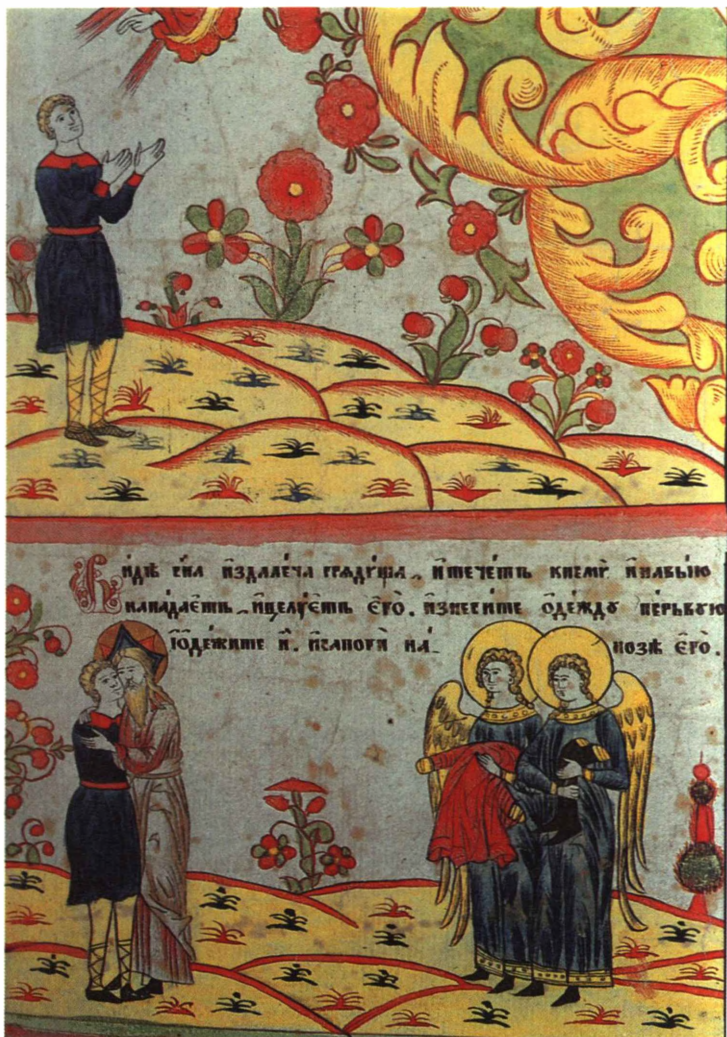 Видѣ сн҃а и҆здале́ча грѧдꙋ́ща, и҆тече́тъ кнемꙋ̀ и҆навы́ю
напада́етъ, и҆целꙋ́етъ є҆го̀. и҆знеси́те ѻ҆де́ждꙋ пе́рьвꙋю
и҆ѡ҆дежи́те и҆̀. и҆сапогѝ на́ нозѣ є҆го̀.